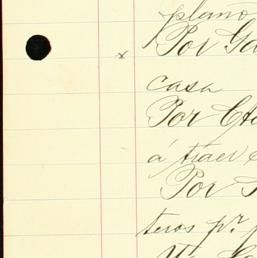 plano
x Por Ga
casa
Por Cta
á traer
Por
teros pr. p